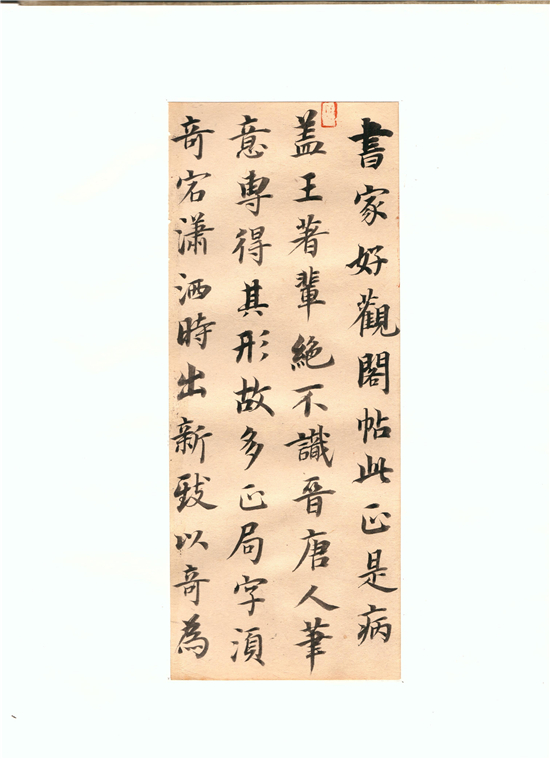 書家好觀閣帖此正是病
盖王著輩絕不識晉唐人筆
意專得其形故多正局字須
奇宕潇洒時出新致以奇為